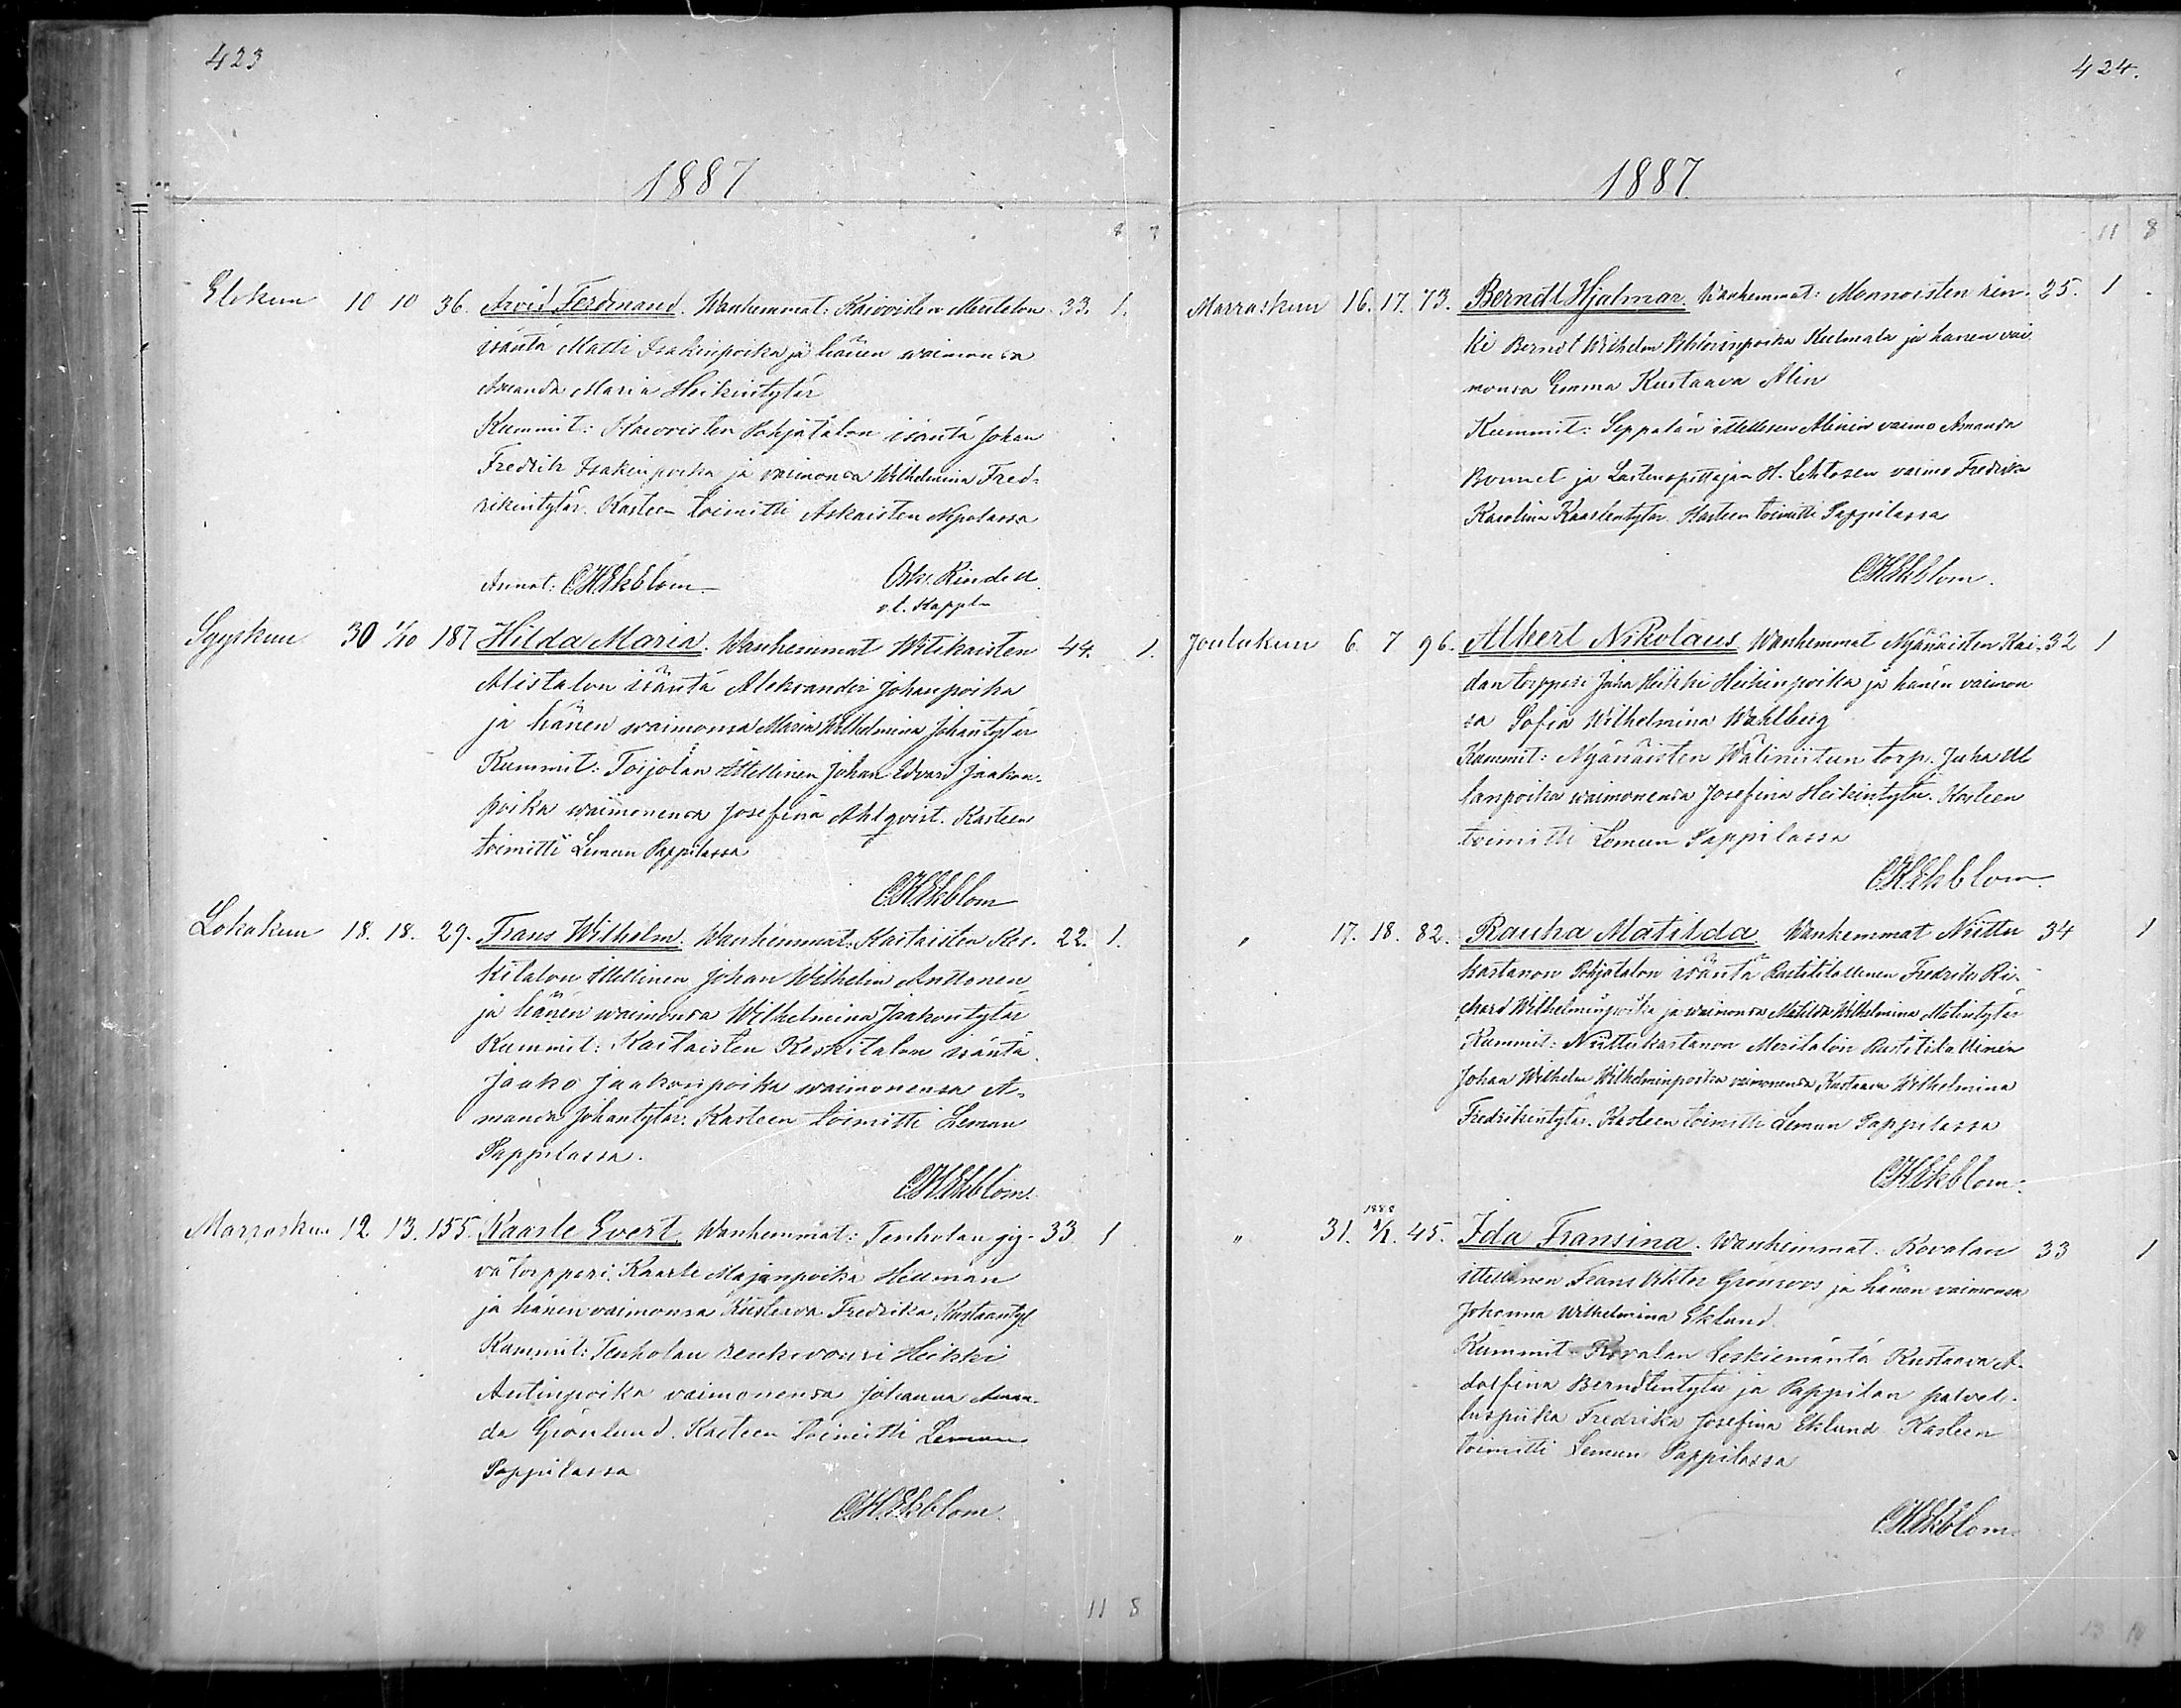 423
1887
8 7
Elokuu 10 10 36. Arvid Ferdinand. Wanhemmat: Kaivoisten Meultalon 33. 1.
isäntä Matti Isakinpoika ja hänen waimonsa
Amanda Maria Heikintytär
Kummit: Kaivoisten Pohjatalon isäntä Johan
Fredrik Isakinpoika ja vaimonsa Wilhelmina Fred-
rikintytär. Kasteen toimitti Askaisten Nepolassa
Annot. C.H.Ekblom Osk. Rindell
v.t. Kappel.
Syyskuu 30 1/10 187 Hilda Maria. Wanhemmat Witikaisten 44. 1.
Alistalon isäntä Aleksander Johanpoika
ja hänen waimonsa Maria Wilhelmina Johantytär
Kummit: Toijolan ittellinen Johan Edvard Jaakon-
poika waimonensa Josefina Ahlqvist. Kasteen
toimitti Lemun Pappilassa
C.H.Ekblom
Lokakuu 18. 18. 29. Frans Wilhelm. Wanhemmat: Kaitaisten Kes- 22. 1.
kitalon ittellinen Johan Wilhelm Anttonen
ja hänen waimonsa Wilhelmina Jaakontytär
Kummit: Kaitaisten Keskitalon isäntä
Jaako Jaakonpoika waimonensa A-
manda Johantytär. Kasteen toimitti Lemun
Pappilassa.
C.H.Ekblom.
Marraskuu 12. 13. 155. Kaarle Evert. Wanhemmat: Tenholan jy- 33 1
vä torppari Kaarle Majanpoika Hellman
ja hänen vaimonsa Kustaava Fredrika Kustaantyt
Kummit: Tenholan renkivouri Heikki
Antinpoika vaimonensa Johanna Aman-
da Grönlund. Kasteen toimitti Lemun
Pappilassa
C.H.Ekblom.
11 8
424.
1887.
11 8
Marraskuu 16. 17. 73. Berndt Hjalmar. Wanhemmat: Monnoisten ren- 25. 1
ki Berndt Wilhelm Kulmala ja hänen vai
monsa Emma Kustaava Alin
Kummit: Seppälän ittellisen Alinin vaimo Amanda
ja Lastenopettajan H. Lehtosen vaimo Fredrika
Karolina Kaarlentytär. Kasteen toimitti Pappilassa
C.H.Ekblom.
Joulukuu 6. 7 96. Albert Nikolaus Wanhemmat Nyänäisten Kai- 32 1
dan torppari Juha Heikki Heikinpoika ja hänen vaimon
sa Sofia Wilhelmina Wahlberg
Kummit: Nyänäisten Wäliniitun torp. Juha Ul
lanpoika waimonensa Josefina Heikintytär. Kasteen
toimitti Lemun Pappilassa
C.H.Ekblom.
" 17. 18. 82. Rauha Matilda. Wanhemmat Niittu 34 1
kartanon Pohjatalon isäntä Rustitilallinen Fredrik Ri-
chard Wilhelminpoika ja waimonsa Matilda Wilhelmina Matintytär
Kummit: Niittukartanon Meritalon Rustitilallinen
Johan Wilhelm Wilhelminpoika vaimonensa Kustaava Wilhelmina
Fredrikintytär. Kasteen toimitti Lemun Pappilassa
C.H.Ekblom.
1888
" 31. 1/1. 45. Ida Fransina. Wanhemmat. Rovalan 33 1
ittellinen Frans Viktor Grönroos ja hänen vaimonsa
Johanna Wilhelmina Eklund.
Kummit Rovalan leskiemäntä Kustaava A-
dolfina Berndtintytär ja Pappilan palvel-
luspiika Fredrika Josefina Eklund Kasteen
toimitti Lemun Pappilassa
C.H.Ekblom.
13 10